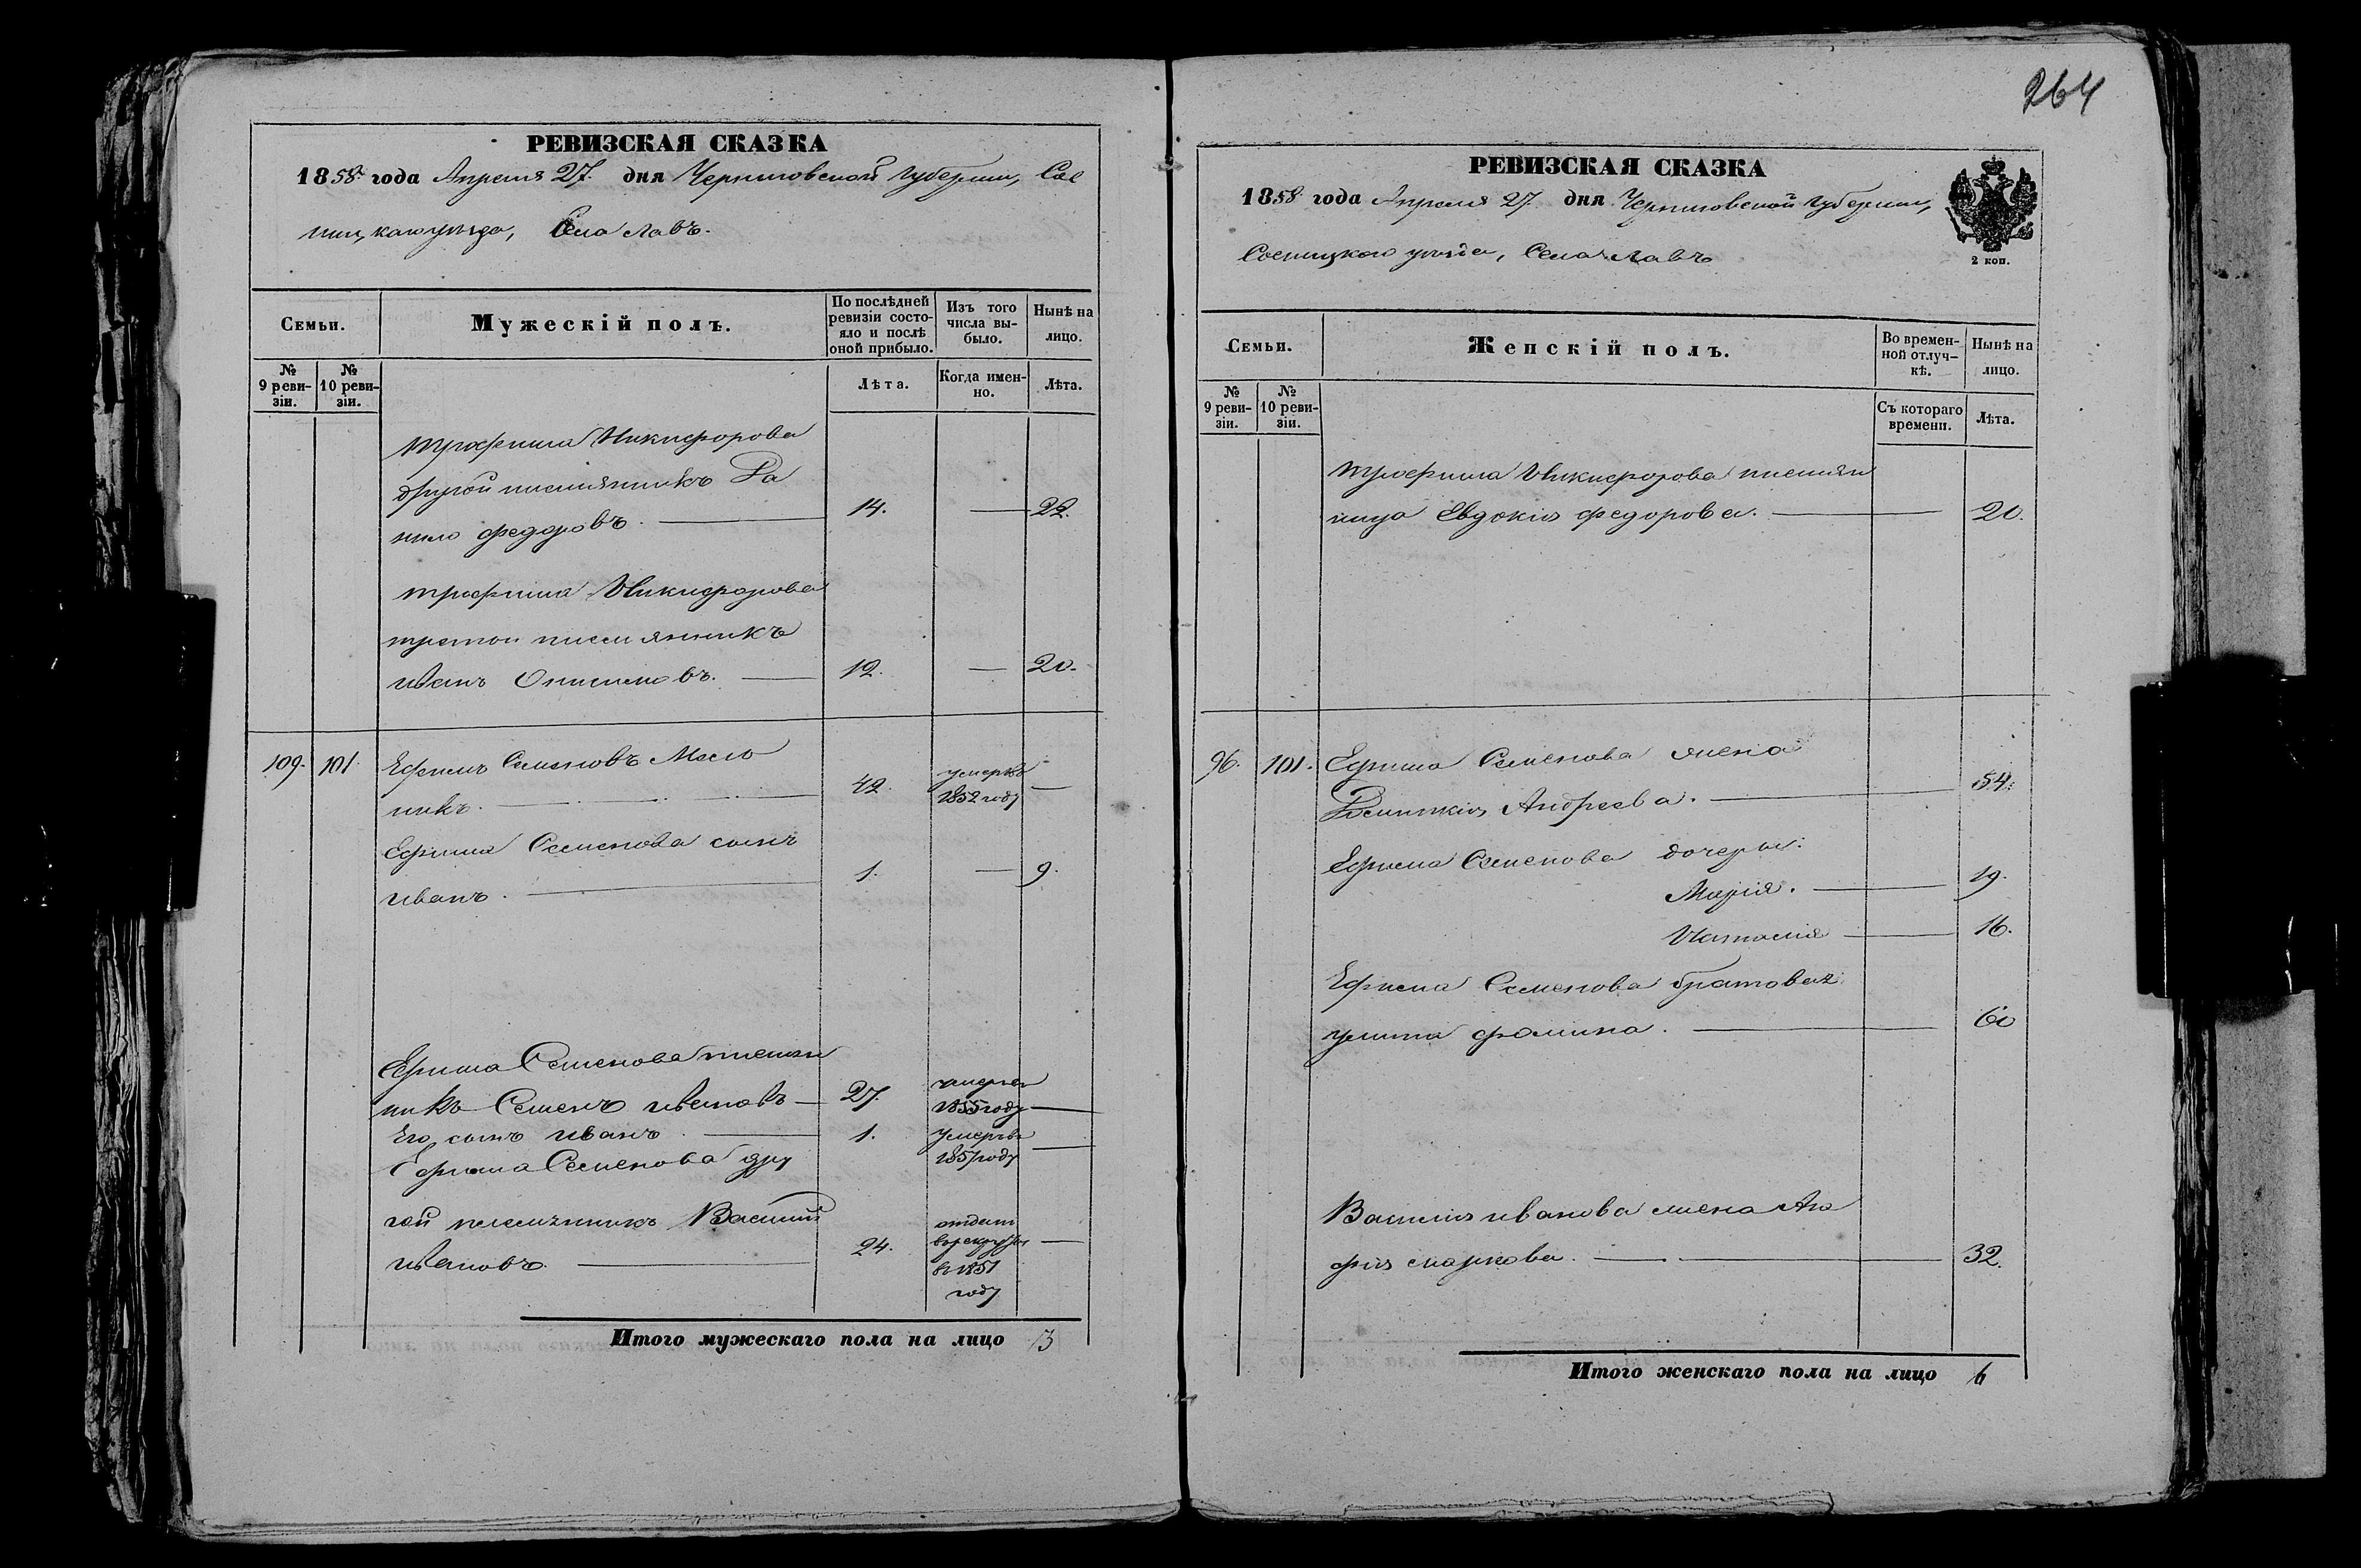 264
РЕВИЗСКАЯ СКАЗКА
1858 года Апреля 27. дня Черниговской Губернии, Сос
ницкаго уезда, Села Лавъ.
Семьи.
Мужескій полъ.
По послѣдней
ревизіи состо-
яло и послѣ
оной прибыло.
Изъ того
числа вы-
было.
Нынѣ на
лицо.
№
9 реви-
зіи.
№
10 реви-
зіи.
Лѣта.
Когда имен-
но.
Лѣта.
Трофима Никифорова
другой племянникъ Да
нило Федоровъ. 14. — 22.
Трофима Никифорова
третой племянникъ
Иванъ Онисимовъ. 12. — 20.
109. 101. Ефимъ Семеновъ
никъ. 42. умеръ 1852 году —
Ефима Семенова сынъ
Иванъ. 1. — 9.
Ефима Семенова племян
никъ Семенъ Ивановъ — 27. умеръ 1855 году —
Его сынъ Иванъ 1. умеръ 1851 году —
Ефима Семенова дру
гой племянникъ Василий
Ивановъ. 24. отдан в рекруты в 1851 году —
Итого мужескаго пола на лицо 3
РЕВИЗСКАЯ СКАЗКА
1858 года Апреля 27 дня Черниговской Губернии,
Сосницкаго уезда, Села Лавъ
2 коп.
Семьи.
Женскій полъ.
Во времен-
ной отлуч-
кѣ.
Нынѣ на
лицо.
№
9 реви-
зіи.
№
10 реви-
зіи.
Съ котораго
времени.
Лѣта.
Трофима Никифорова племян
ница Евдокия Федорова. — 20.
96. 101. Ефима Семенова жена
Андреева. — 54.
Ефима Семенова дочери:
Мария. — 19.
Наталия — 16.
Ефима Семенова братовая
Улита Фомина. — 60
Василия Иванова жена Ага
фия Маркова. — 32.
Итого женскаго пола на лицо 6